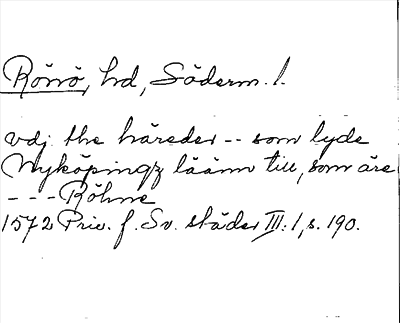 Rönö, hd, Söderm. l.
vdj the häreder -- som lyde
Nyköpingz läänn till, som äre
--- Röhne
1572 Priv. f. Sv. städer III: 1, s. 190.